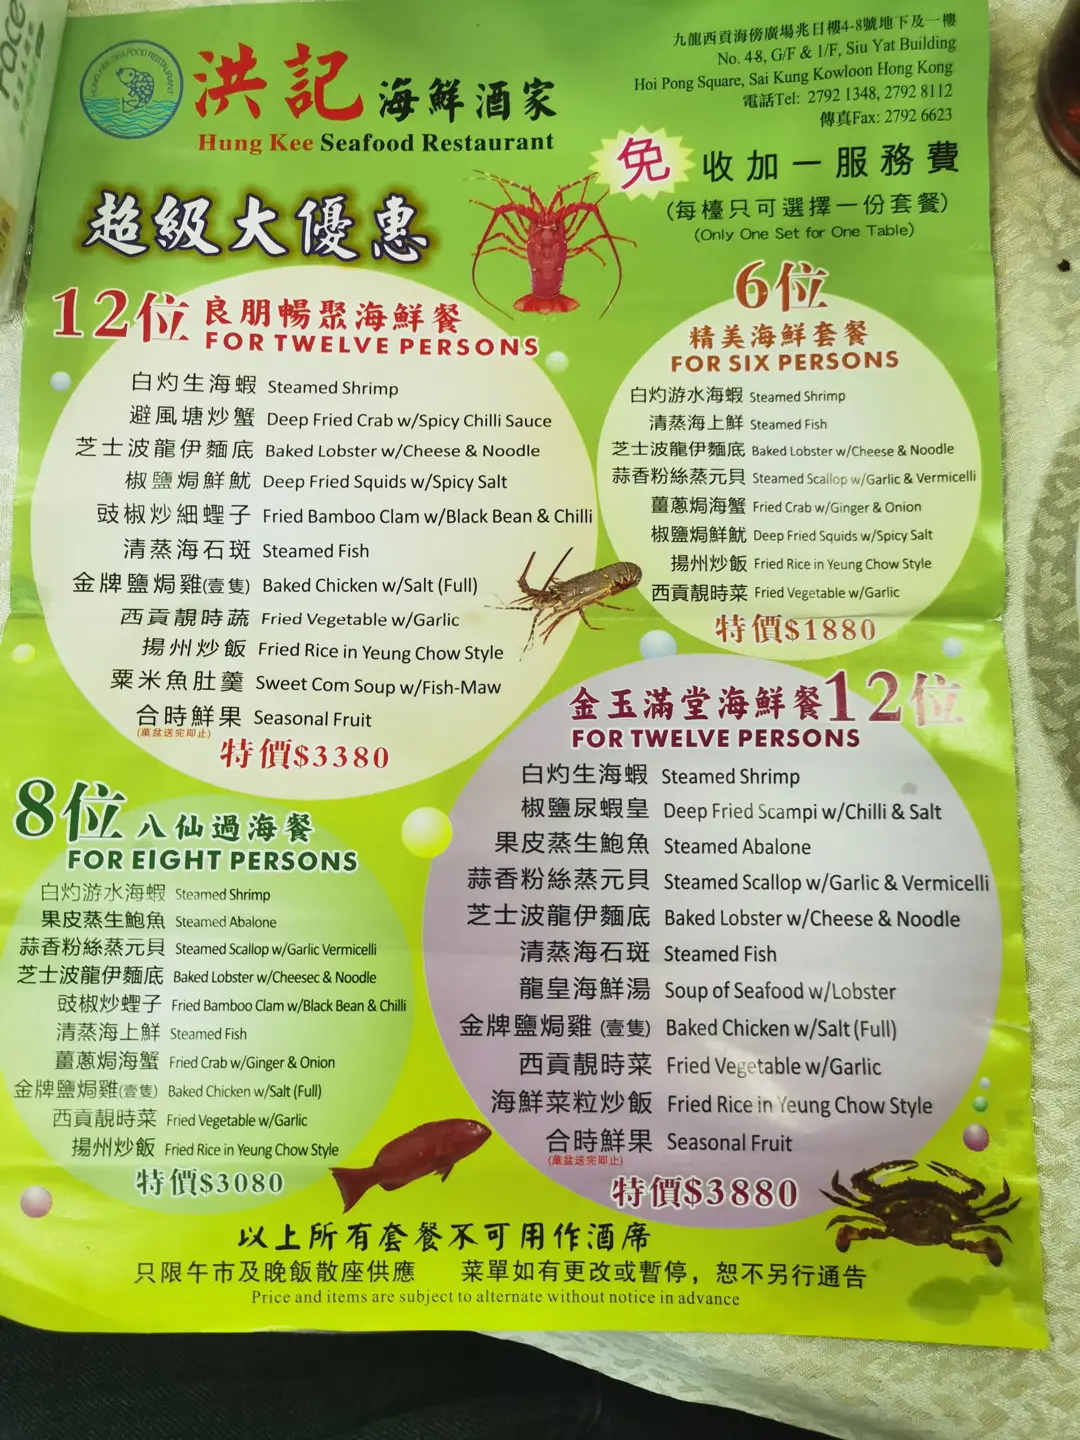 洪記 海鮮酒家
Hung Kee Seafood Restaurant
HUNG KEE SEAFOOD RESTAURANT
九龍西貢海傍廣場兆日樓4-8號地下及一樓
No. 4-8, G/F & 1/F, Siu Yat Building
Hoi Pong Square, Sai Kung Kowloon Hong Kong
電話Tel: 2792 1348, 2792 8112
傳真Fax: 2792 6623
免 收加一服務費
(每檯只可選擇一份套餐)
(Only One Set for One Table)
超級大優惠
12位 良朋暢聚海鮮餐
FOR TWELVE PERSONS
白灼生海蝦 Steamed Shrimp
避風塘炒蟹 Deep Fried Crab w/Spicy Chilli Sauce
芝士波龍伊麵底 Baked Lobster w/Cheese & Noodle
椒鹽焗鮮魷 Deep Fried Squids w/Spicy Salt
豉椒炒細蟶子 Fried Bamboo Clam w/Black Bean & Chilli
清蒸海石斑 Steamed Fish
金牌鹽焗雞(壹隻) Baked Chicken w/Salt (Full)
西貢靚時蔬 Fried Vegetable w/Garlic
揚州炒飯 Fried Rice in Yeung Chow Style
粟米魚肚羹 Sweet Corn Soup w/Fish-Maw
合時鮮果 Seasonal Fruit
(菓盆送完即止)
特價$3380
6位
精美海鮮套餐
FOR SIX PERSONS
白灼游水海蝦 Steamed Shrimp
清蒸海上鮮 Steamed Fish
芝士波龍伊麵底 Baked Lobster w/Cheese & Noodle
蒜香粉絲蒸元貝 Steamed Scallop w/Garlic & Vermicelli
薑蔥焗海蟹 Fried Crab w/Ginger & Onion
椒鹽焗鮮魷 Deep Fried Squids w/Spicy Salt
揚州炒飯 Fried Rice in Yeung Chow Style
西貢靚時菜 Fried Vegetable w/Garlic
特價$1880
8位 八仙過海餐
FOR EIGHT PERSONS
白灼游水海蝦 Steamed Shrimp
果皮蒸生鮑魚 Steamed Abalone
蒜香粉絲蒸元貝 Steamed Scallop w/Garlic Vermicelli
芝士波龍伊麵底 Baked Lobster w/Cheesec & Noodle
豉椒炒蟶子 Fried Bamboo Clam w/Black Bean & Chilli
清蒸海上鮮 Steamed Fish
薑蔥焗海蟹 Fried Crab w/Ginger & Onion
金牌鹽焗雞(壹隻) Baked Chicken w/Salt (Full)
西貢靚時菜 Fried Vegetable w/Garlic
揚州炒飯 Fried Rice in Yeung Chow Style
特價$3080
金玉滿堂海鮮餐12位
FOR TWELVE PERSONS
白灼生海蝦 Steamed Shrimp
椒鹽尿蝦皇 Deep Fried Scampi w/Chilli & Salt
果皮蒸生鮑魚 Steamed Abalone
蒜香粉絲蒸元貝 Steamed Scallop w/Garlic & Vermicelli
芝士波龍伊麵底 Baked Lobster w/Cheese & Noodle
清蒸海石斑 Steamed Fish
龍皇海鮮湯 Soup of Seafood w/Lobster
金牌鹽焗雞 (壹隻) Baked Chicken w/Salt (Full)
西貢靚時菜 Fried Vegetable w/Garlic
海鮮菜粒炒飯 Fried Rice in Yeung Chow Style
合時鮮果 Seasonal Fruit
(菓盆送完即止)
特價$3880
以上所有套餐不可用作酒席
只限午市及晚飯散座供應 菜單如有更改或暫停，恕不另行通告
Price and items are subject to alternate without notice in advance